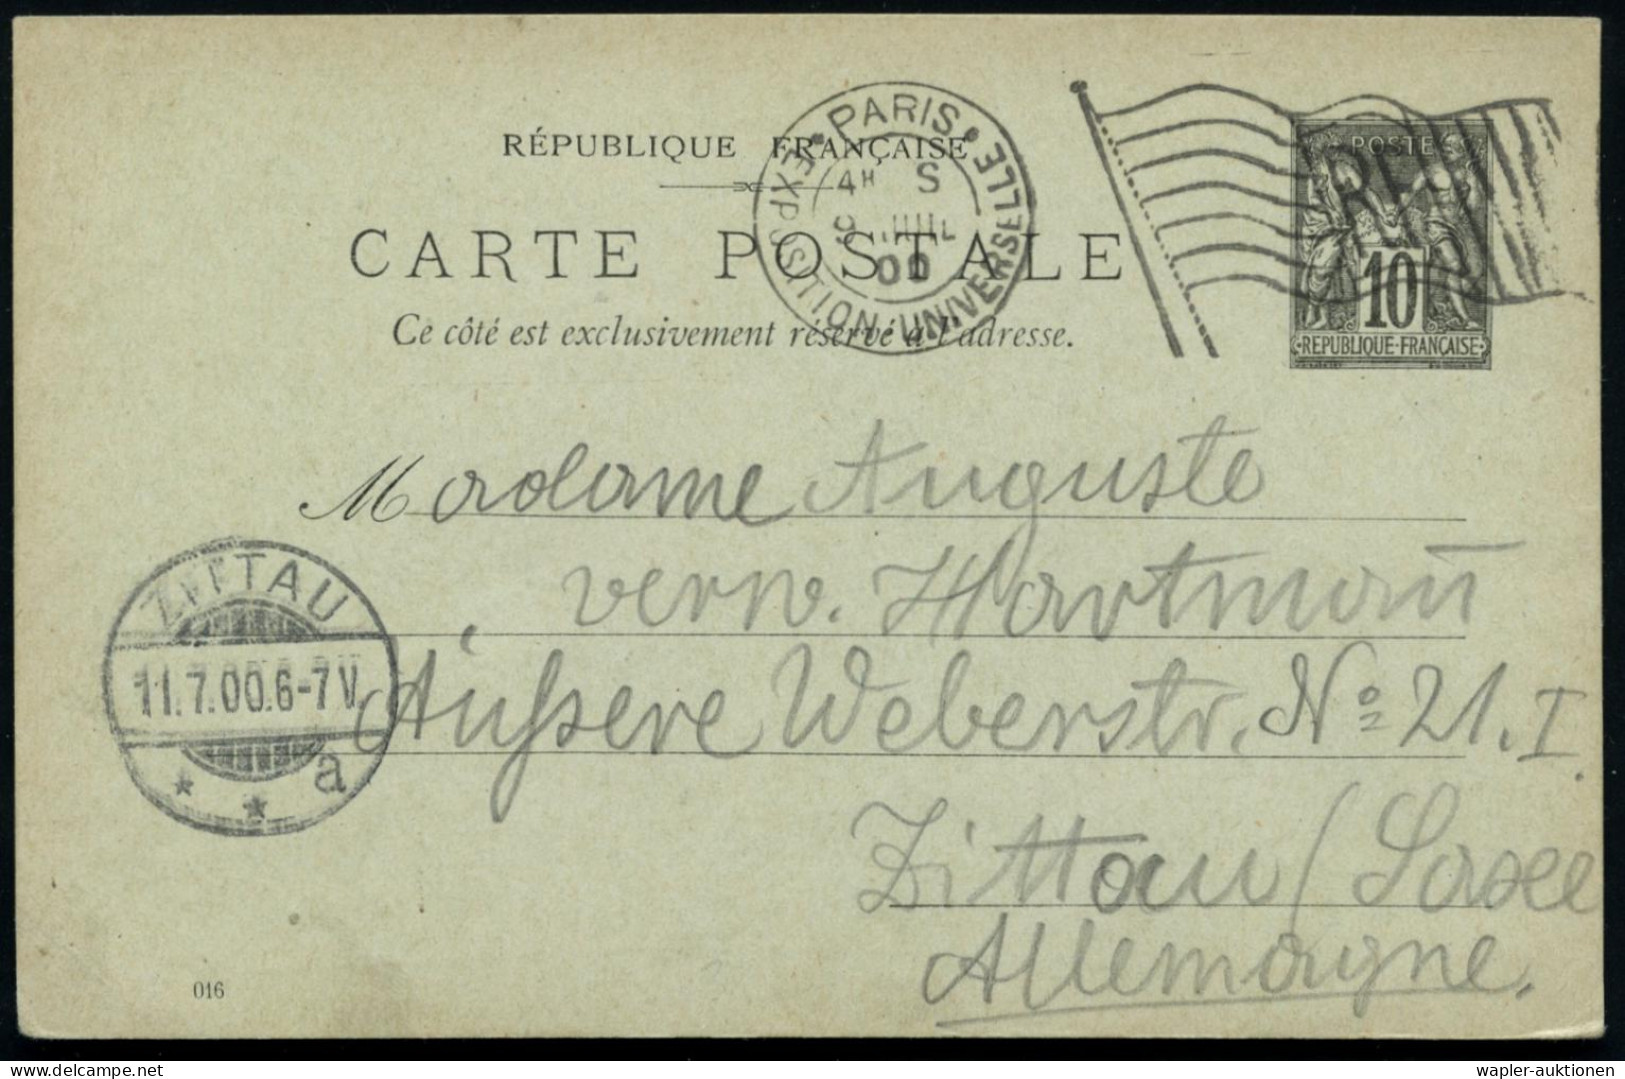 PARIS
EXPOSITION UNIVERSELLE
4H S
9 JUIL
00
RF
POSTES
10
REPUBLIQUE-FRANÇAISE
RÉPUBLIQUE FRANÇAISE
CARTE POSTALE
Ce côté est exclusivement réservé à l'adresse.
Madame Auguste
verw. Hartmañ
Äußere Weberstr. No 21. I.
Zittau (Saxe
Allemagne.
ZITTAU
11.7.00.6-7V.
* * a
016
wapler-auktionen